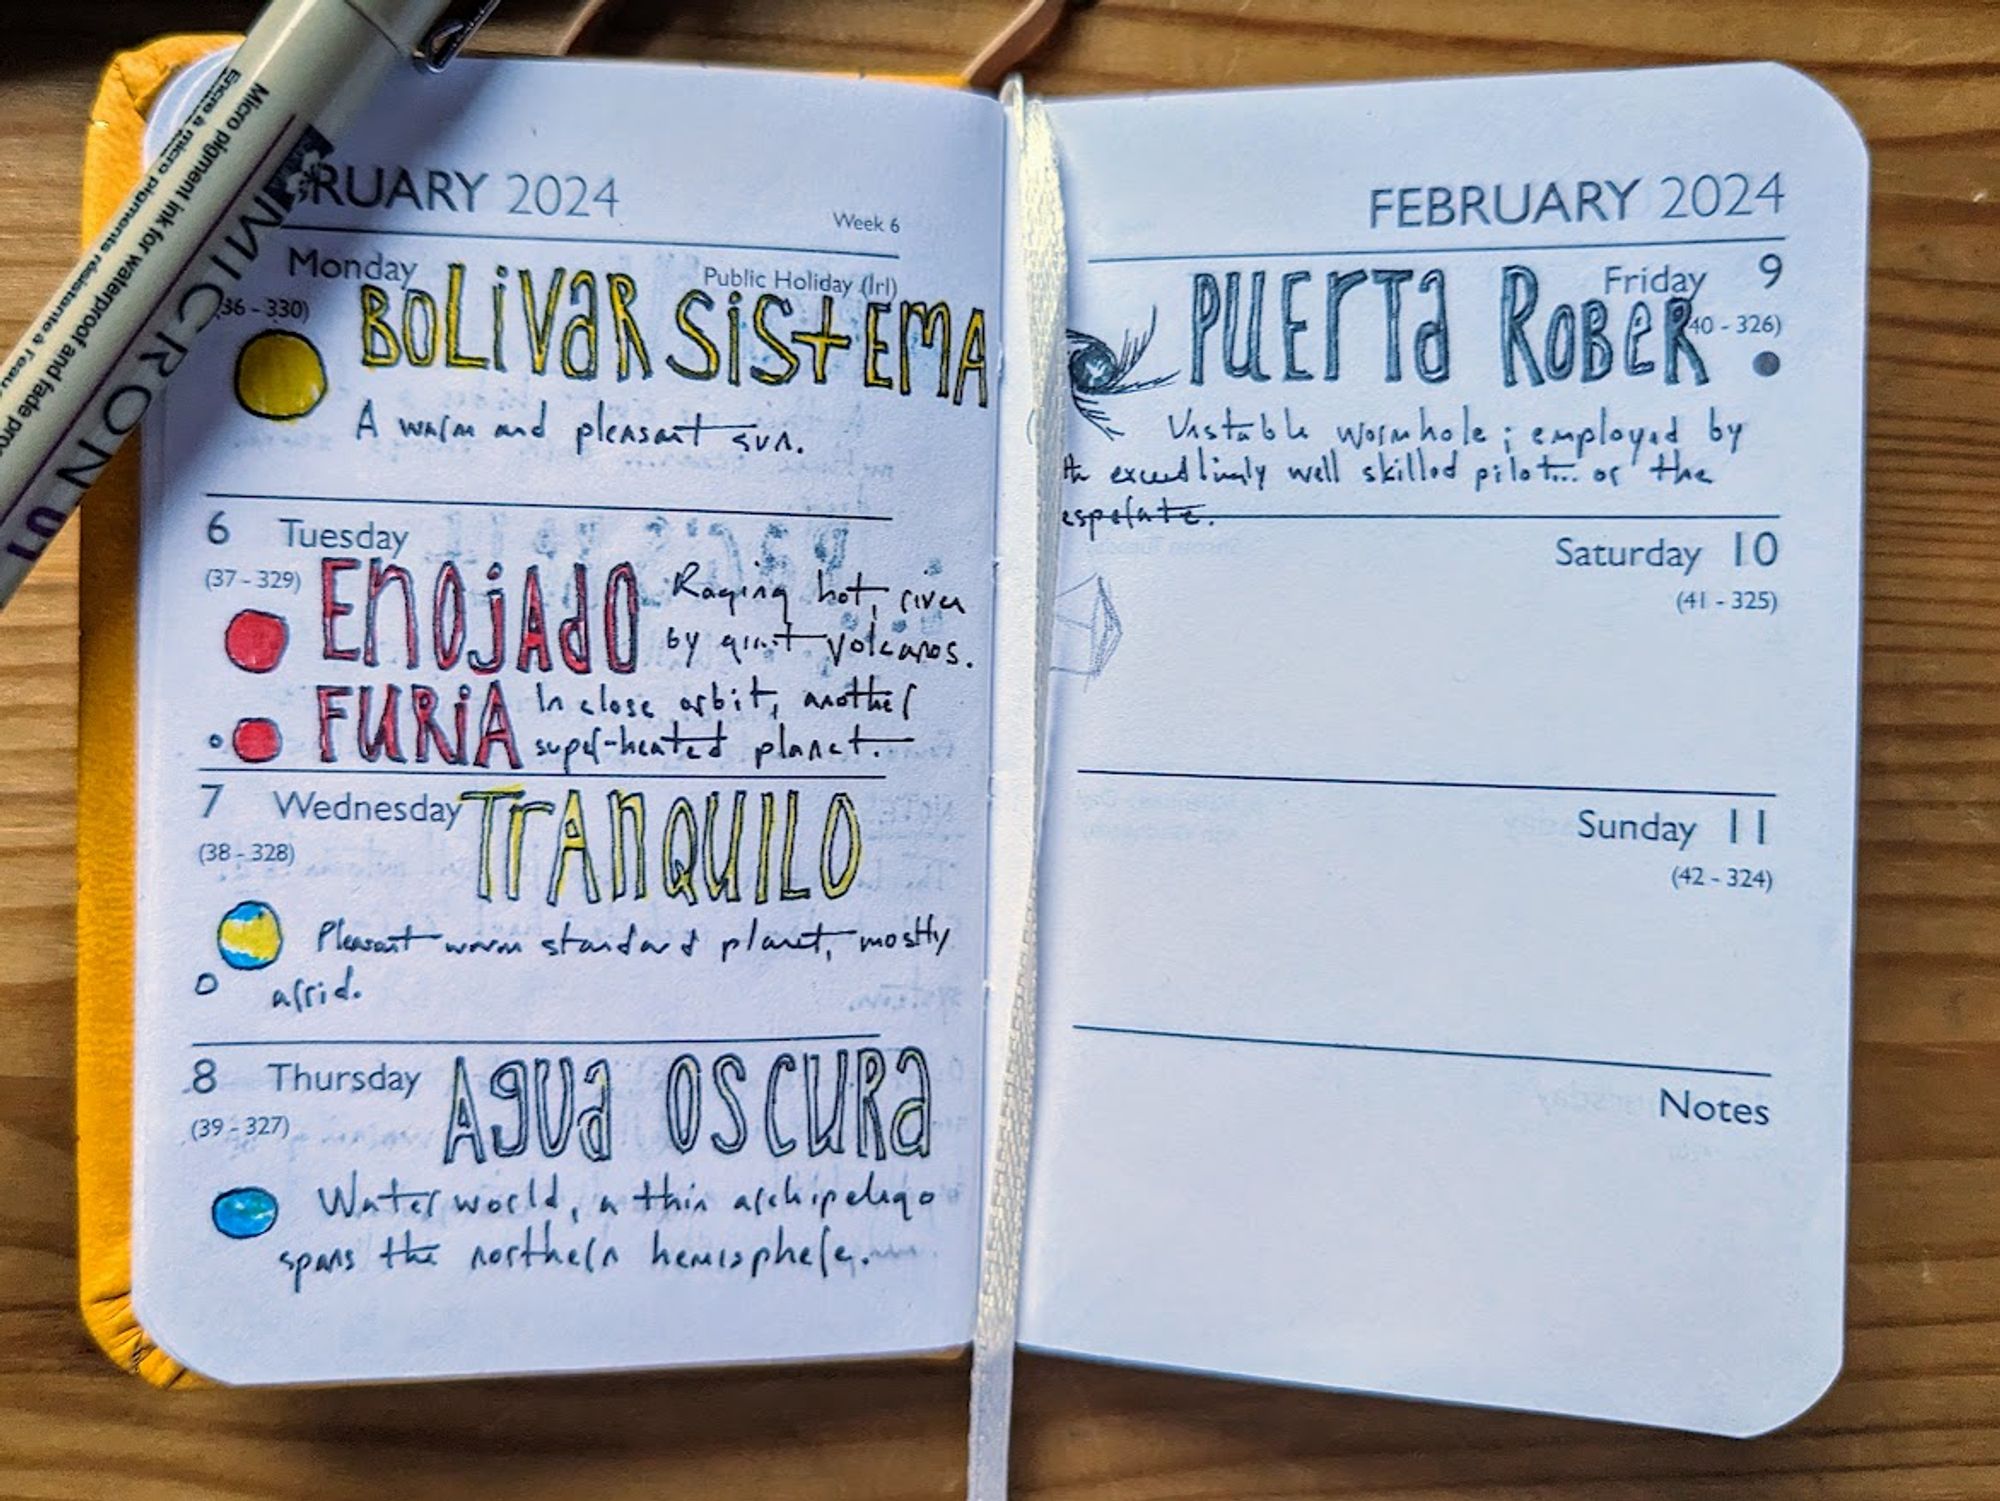 Micro pigment ink for waterproof and fade pro
Encre à micro pigments résistante à l'eau
MICRON 01
RUARY 2024
Week 6
Monday
Public Holiday (Irl)
36 - 330)
BOLiVaR SiStEMA
A warm and pleasant sun.
6 Tuesday
(37 - 329)
ENOjAdO Raging hot, riven
by giant volcanos.
FURiA In close orbit, another
super-heated planet.
7 Wednesday TrANQUILO
(38 - 328)
Pleasant warm standard planet, mostly
arrid.
8 Thursday AgUa OSCURa
(39 - 327)
Water world, a thin archipelago
spans the northern hemisphere.
FEBRUARY 2024
Friday 9
40 - 326)
PUErTa RoBeR
Unstable wormhole; employed by
exceedingly well skilled pilot... or the
esperate.
Saturday 10
(41 - 325)
Sunday 11
(42 - 324)
Notes